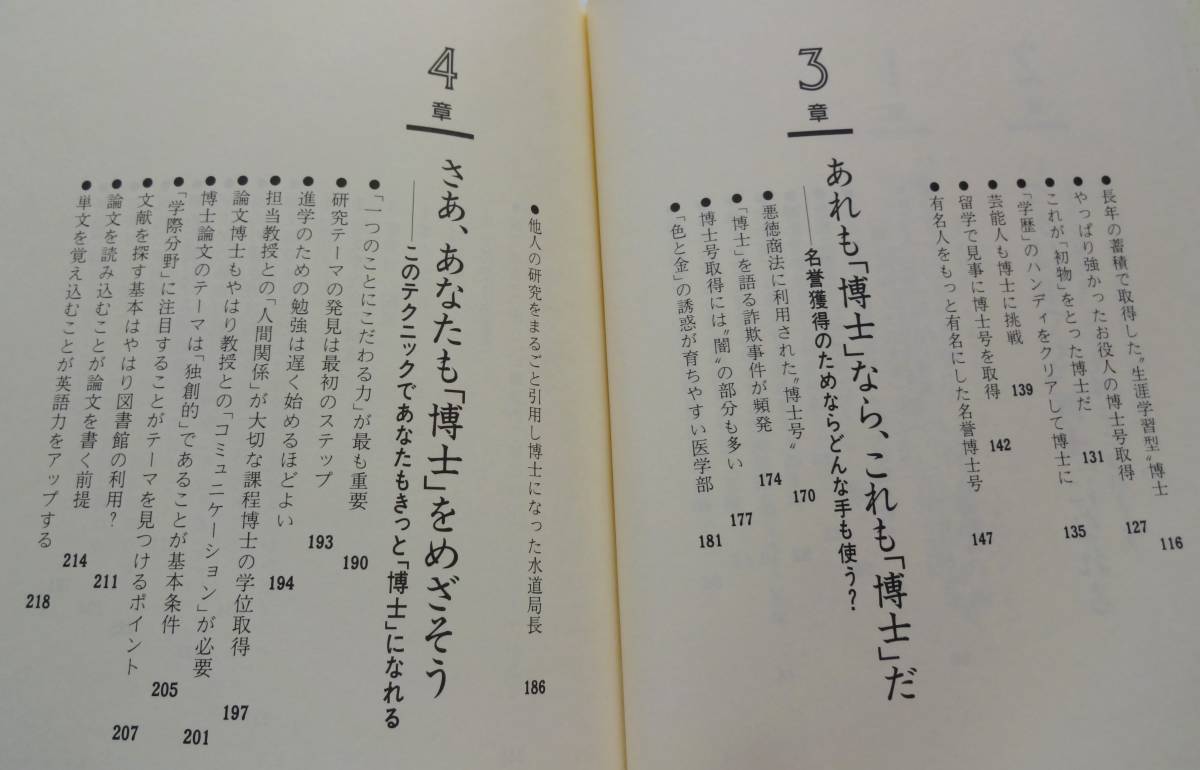 ●長年の蓄積で取得した〝生涯学習型〟博士 116
●やっぱり強かったお役人の博士号取得 127
●これが「初物」をとった博士だ 131
●「学歴」のハンディをクリアして博士に 135
●芸能人も博士に挑戦 139
●留学で見事に博士号を取得 142
●有名人をもっと有名にした名誉博士号 147
3章 あれも「博士」なら、これも「博士」だ
――名誉獲得のためならどんな手も使う?
●悪徳商法に利用された〝博士号〟 170
●「博士」を語る詐欺事件が頻発 174
●博士号取得には〝闇〟の部分も多い 177
●「色と金」の誘惑が育ちやすい医学部 181
●他人の研究をまるごと引用し博士になった水道局長 186
4章 さあ、あなたも「博士」をめざそう
――このテクニックであなたもきっと「博士」になれる
●「一つのことにこだわる力」が最も重要 190
●研究テーマの発見は最初のステップ 193
●進学のための勉強は遅く始めるほどよい 194
●担当教授との「人間関係」が大切な課程博士の学位取得 197
●論文博士もやはり教授との「コミュニケーション」が必要 201
●博士論文のテーマは「独創的」であることが基本条件 205
●「学際分野」に注目することがテーマを見つけるポイント 207
●文献を探す基本はやはり図書館の利用? 211
●論文を読み込むことが論文を書く前提 214
●単文を覚え込むことが英語力をアップする 218